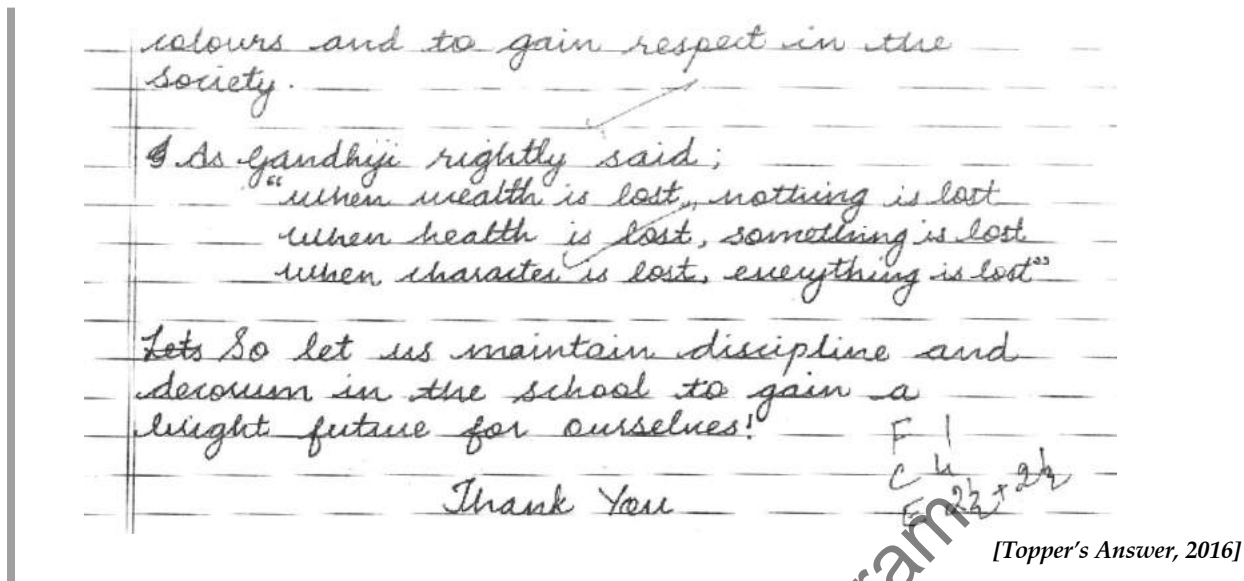 colours and to gain respect in the
society.
As Gandhiji rightly said;
"when wealth is lost, nothing is lost
when health is lost, something is lost
when character is lost, everything is lost"
Lets So let us maintain discipline and
decorum in the school to gain a
bright future for ourselves!
F 1
C 4
Thank You
E 2½ + 2½
[Topper's Answer, 2016]